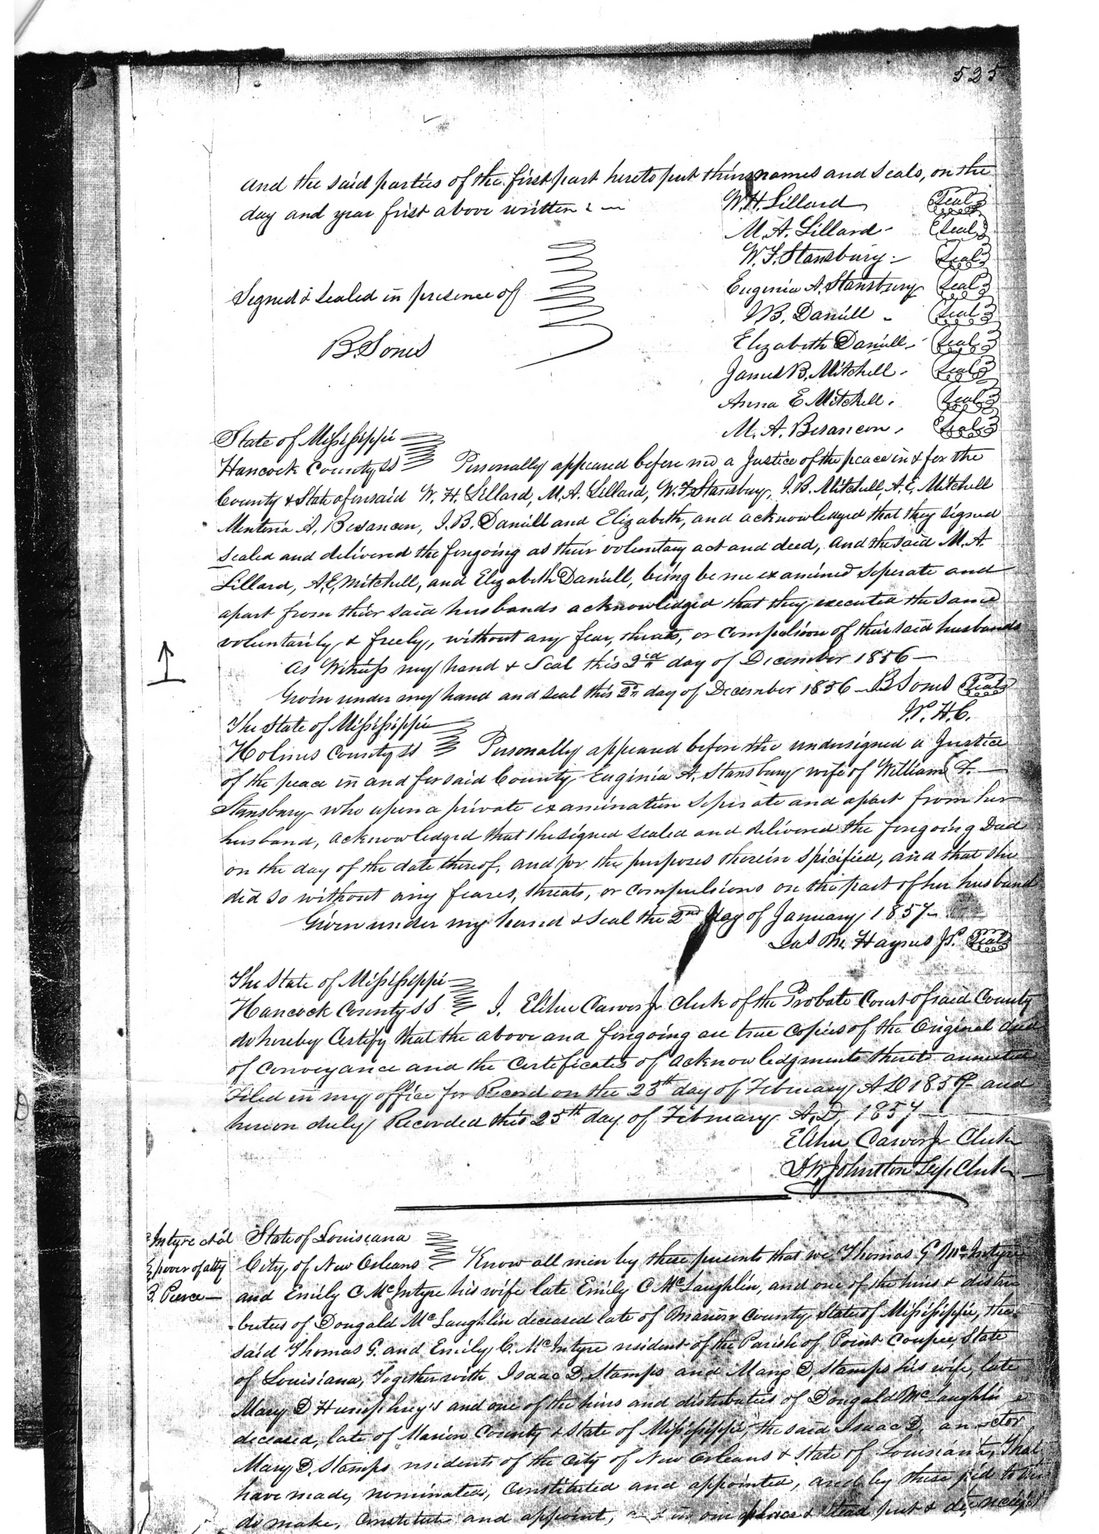 525
and the said parties of the first part hereto put their names and seals, on the
day and year first above written :
W. H. Lillard Seal
M. A. Lillard Seal
W. F. Stansbury Seal
Eugenia A. Stansbury Seal
Signed & sealed in presence of
B. Daniell Seal
Elizabeth Daniell Seal
B. Jones
James B. Mitchell Seal
Anna E Mitchell Seal
M. A. Besancon Seal
State of Mississippi
Hancock County SS Personally appeared before me a Justice of the peace in & for the
County & State aforesaid W. H. Lillard, M. A. Lillard, W. F. Stansbury, J. B. Mitchell, A. E. Mitchell
A. Besancon, J. B. Daniell and Elizabeth, and acknowledged that they signed
sealed and delivered the forgoing as their voluntary act and deed, and the said M. A.
Lillard, A. E. Mitchell, and Elizabeth Daniell, being by me examined seperate and
apart from their said husbands acknowledged that they executed the same
voluntarily & freely, without any fear, threats, or compulsion of their said husbands
As Witness my hand & Seal this 2nd day of December 1856
Given under my hand and seal this 2nd day of December 1856 B Jones Seal
J. P. H. C.
The State of Mississippi
Holmes County SS Personally appeared before the undersigned a Justice
of the peace in and for said County Euginia A. Stansbury wife of William F.
Stansbury who upon a private examination seperate and apart from her
husband, acknowledged that she signed sealed and delivered the forgoing Deed
on the day of the date thereof, and for the purposes therein specified, and that she
did so without any feares, threats, or compulsions on the part of her husband
Given under my hand & seal the 2nd day of January 1857
Haynes J. P. Seal
The State of Mississippi
Hancock County SS I, Elihu Carver Jr Clerk of the Probate Court of said County
do hereby Certify that the above and forgoing are true Copies of the Original deed
of conveyance and the Certificates of acknowledgments thereto annexed
Filed in my office for Record on the 25th day of February A D 1857 and
hereon duly Recorded this 25th day of February A. D. 1857
Elihu Carver Jr Clerk
Johnston Clerk
State of Louisiana
City of New Orleans Know all men by these presents that we Thomas G McIntyre
Intyre et al
power of atty
B. Pierce
and Emily C McIntyre his wife late Emily C McLaughlin, and one of the heirs & distri
butes of Dougald McLaughlin deceased late of Marion County State of Mississippi, the
said Thomas G. and Emily C. McIntyre resident of the Parish of Point Coupee, State
of Louisiana, Together with Isaac D. Stamps and Mary D. Stamps his wife, late
Mary D Humphrey's and one of the heirs and distributes of Dougald McLaughlin
deceased, late of Marion County & State of Mississippi, the said Isaac D. and
Mary D. Stamps residents of the City of New Orleans & State of Louisiana, that
have made, nominated, constituted and appointed, and by these
do make, Constitute and appoint, in our place & stead put &